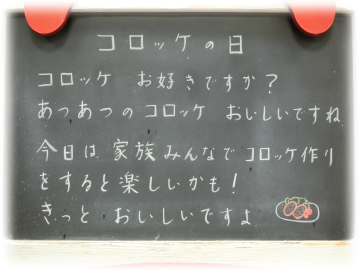 コロッケの日
コロッケ お好きですか?
あつあつのコロッケ おいしいですね
今日は 家族みんなでコロッケ作り
をすると楽しいかも!
きっと おいしいですよ